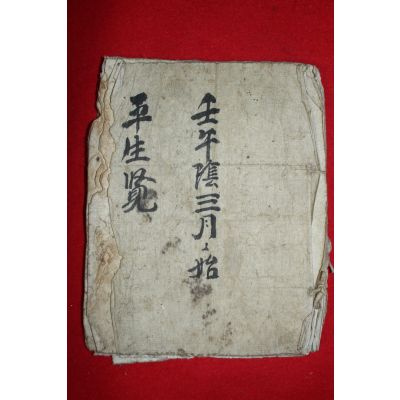 壬午陰三月々始
平生覽